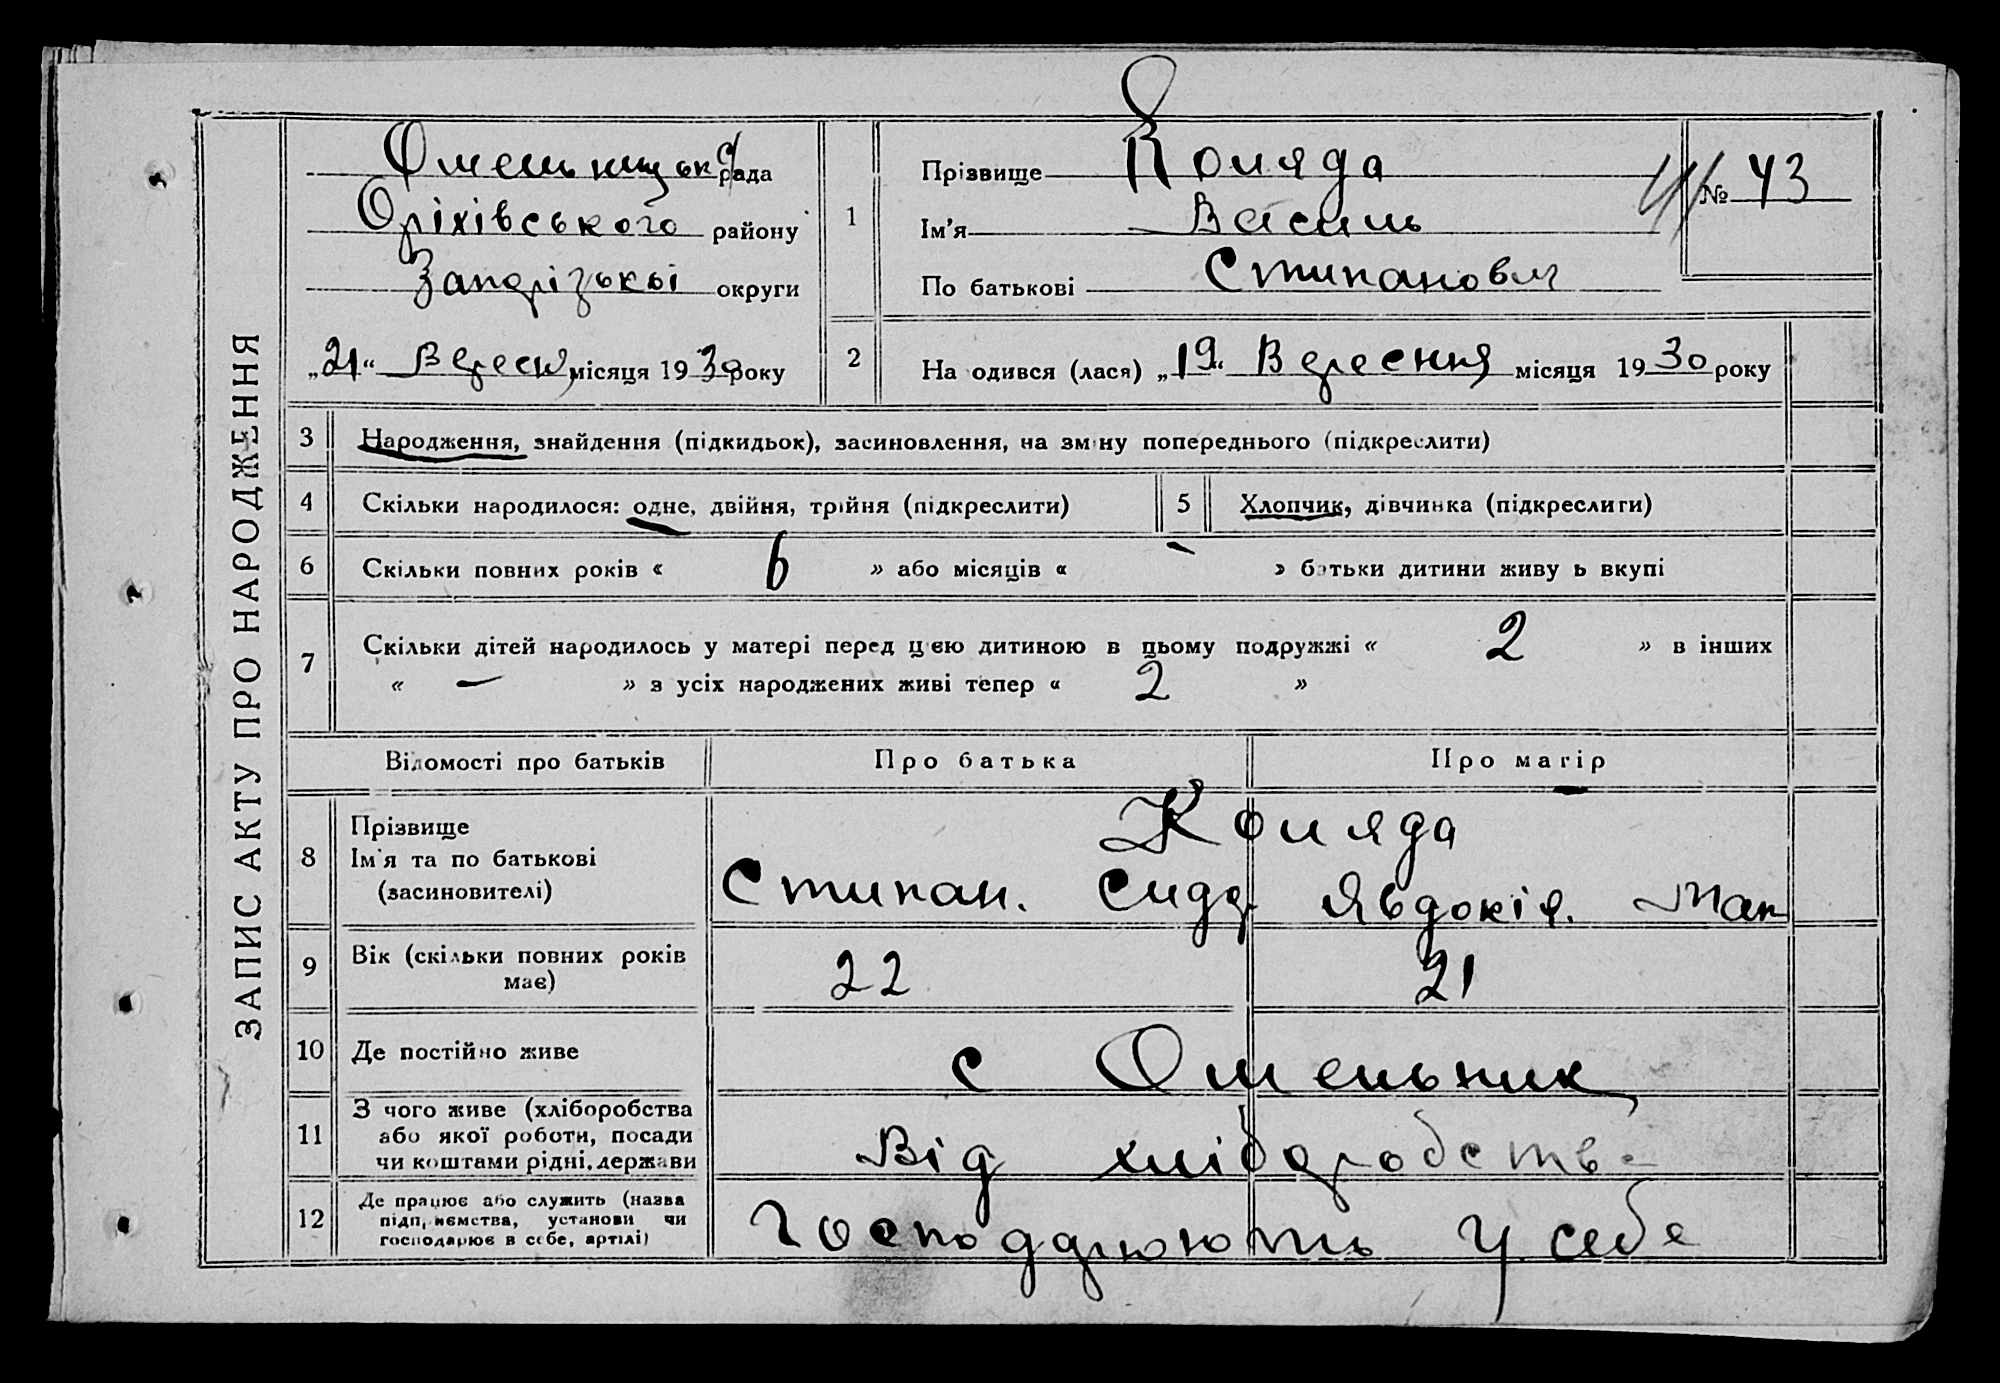 ЗАПИС АКТУ ПРО НАРОДЖЕННЯ
Омельницька рада
Оріхівського району
Запорізької округи
„21“ Вересня місяця 1930 року
1
Прізвище Коляда
Ім'я Василь
По батькові Стипанович
№ 43
41
2
На одився (лася) „19“ Вересння місяця 1930 року
3 Народження, знайдення (підкидьок), засиновлення, на зміну попереднього (підкреслити)
4 Скільки народилося: одне, двійня, трійня (підкреслити)
5 Хлопчик, дівчинка (підкреслиги)
6 Скільки повних років « 6 » або місяців « - » батьки дитини живу ь вкупі
7 Скільки дітей народилось у матері перед цією дитиною в цьому подружжі « 2 » в інших
« — » з усіх народжених живі тепер « 2 »
Відомості про батьків Про батька Про матір
8 Прізвище
Ім'я та по батькові
(засиновителі)
Коляда
Стипан. Сидор Явдокія. Мак
9 Вік (скільки повних років
має)
22 21
10 Де постійно живе
с Омельник
11 З чого живе (хліборобства
або якої роботи, посади
чи коштами рідні, держави
Від хліборобства
12 Де працює або служить (назва
підприємства, установи чи
господарює в себе, артілі)
Господдрюють у себе